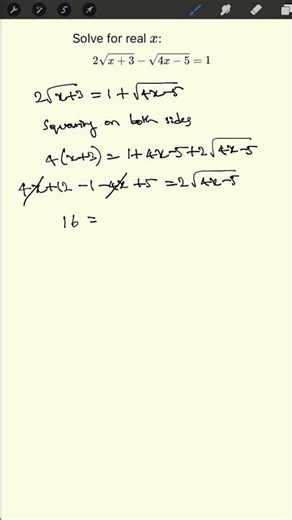 Solve for real x:
2√(x + 3) − √(4x − 5) = 1
2√(x+3) = 1 + √(4x−5)
Squaring on both sides
4(x+3) = 1+4x−5+2√(4x−5)
4x+12 −1 −4x +5 = 2√(4x−5)
16 =